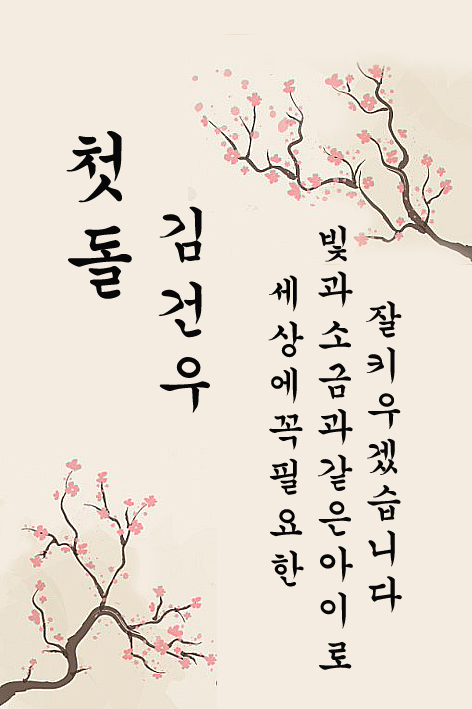 첫돌
김건우
세상에꼭필요한
빛과소금과같은아이로
잘키우겠습니다